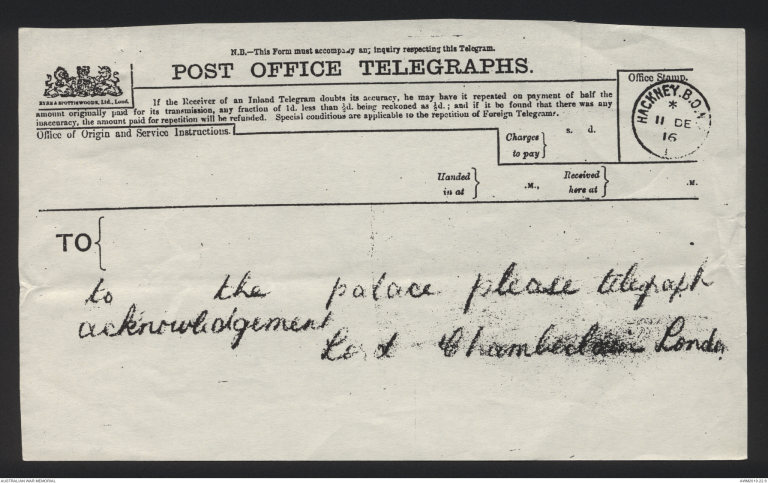 N.B.—This Form must accompany any inquiry respecting this Telegram.
POST OFFICE TELEGRAPHS.
EYRE & SPOTTISWOODE, Ltd., Lond.
If the Receiver of an Inland Telegram doubts its accuracy, he may have it repeated on payment of half the
amount originally paid for its transmission, any fraction of 1d. less than ½d. being reckoned as ½d.; and if it be found that there was any
inaccuracy, the amount paid for repetition will be refunded. Special conditions are applicable to the repetition of Foreign Telegrams.
Office Stamp.
HACKNEY.B.O.
*
11 DE
16
Office of Origin and Service Instructions.
Charges
to pay
s. d.
Handed
in at
.M.,
Received
here at
.M.
TO
to the palace please telegraph
acknowledgement
Lord Chamberlain London
AUSTRALIAN WAR MEMORIAL